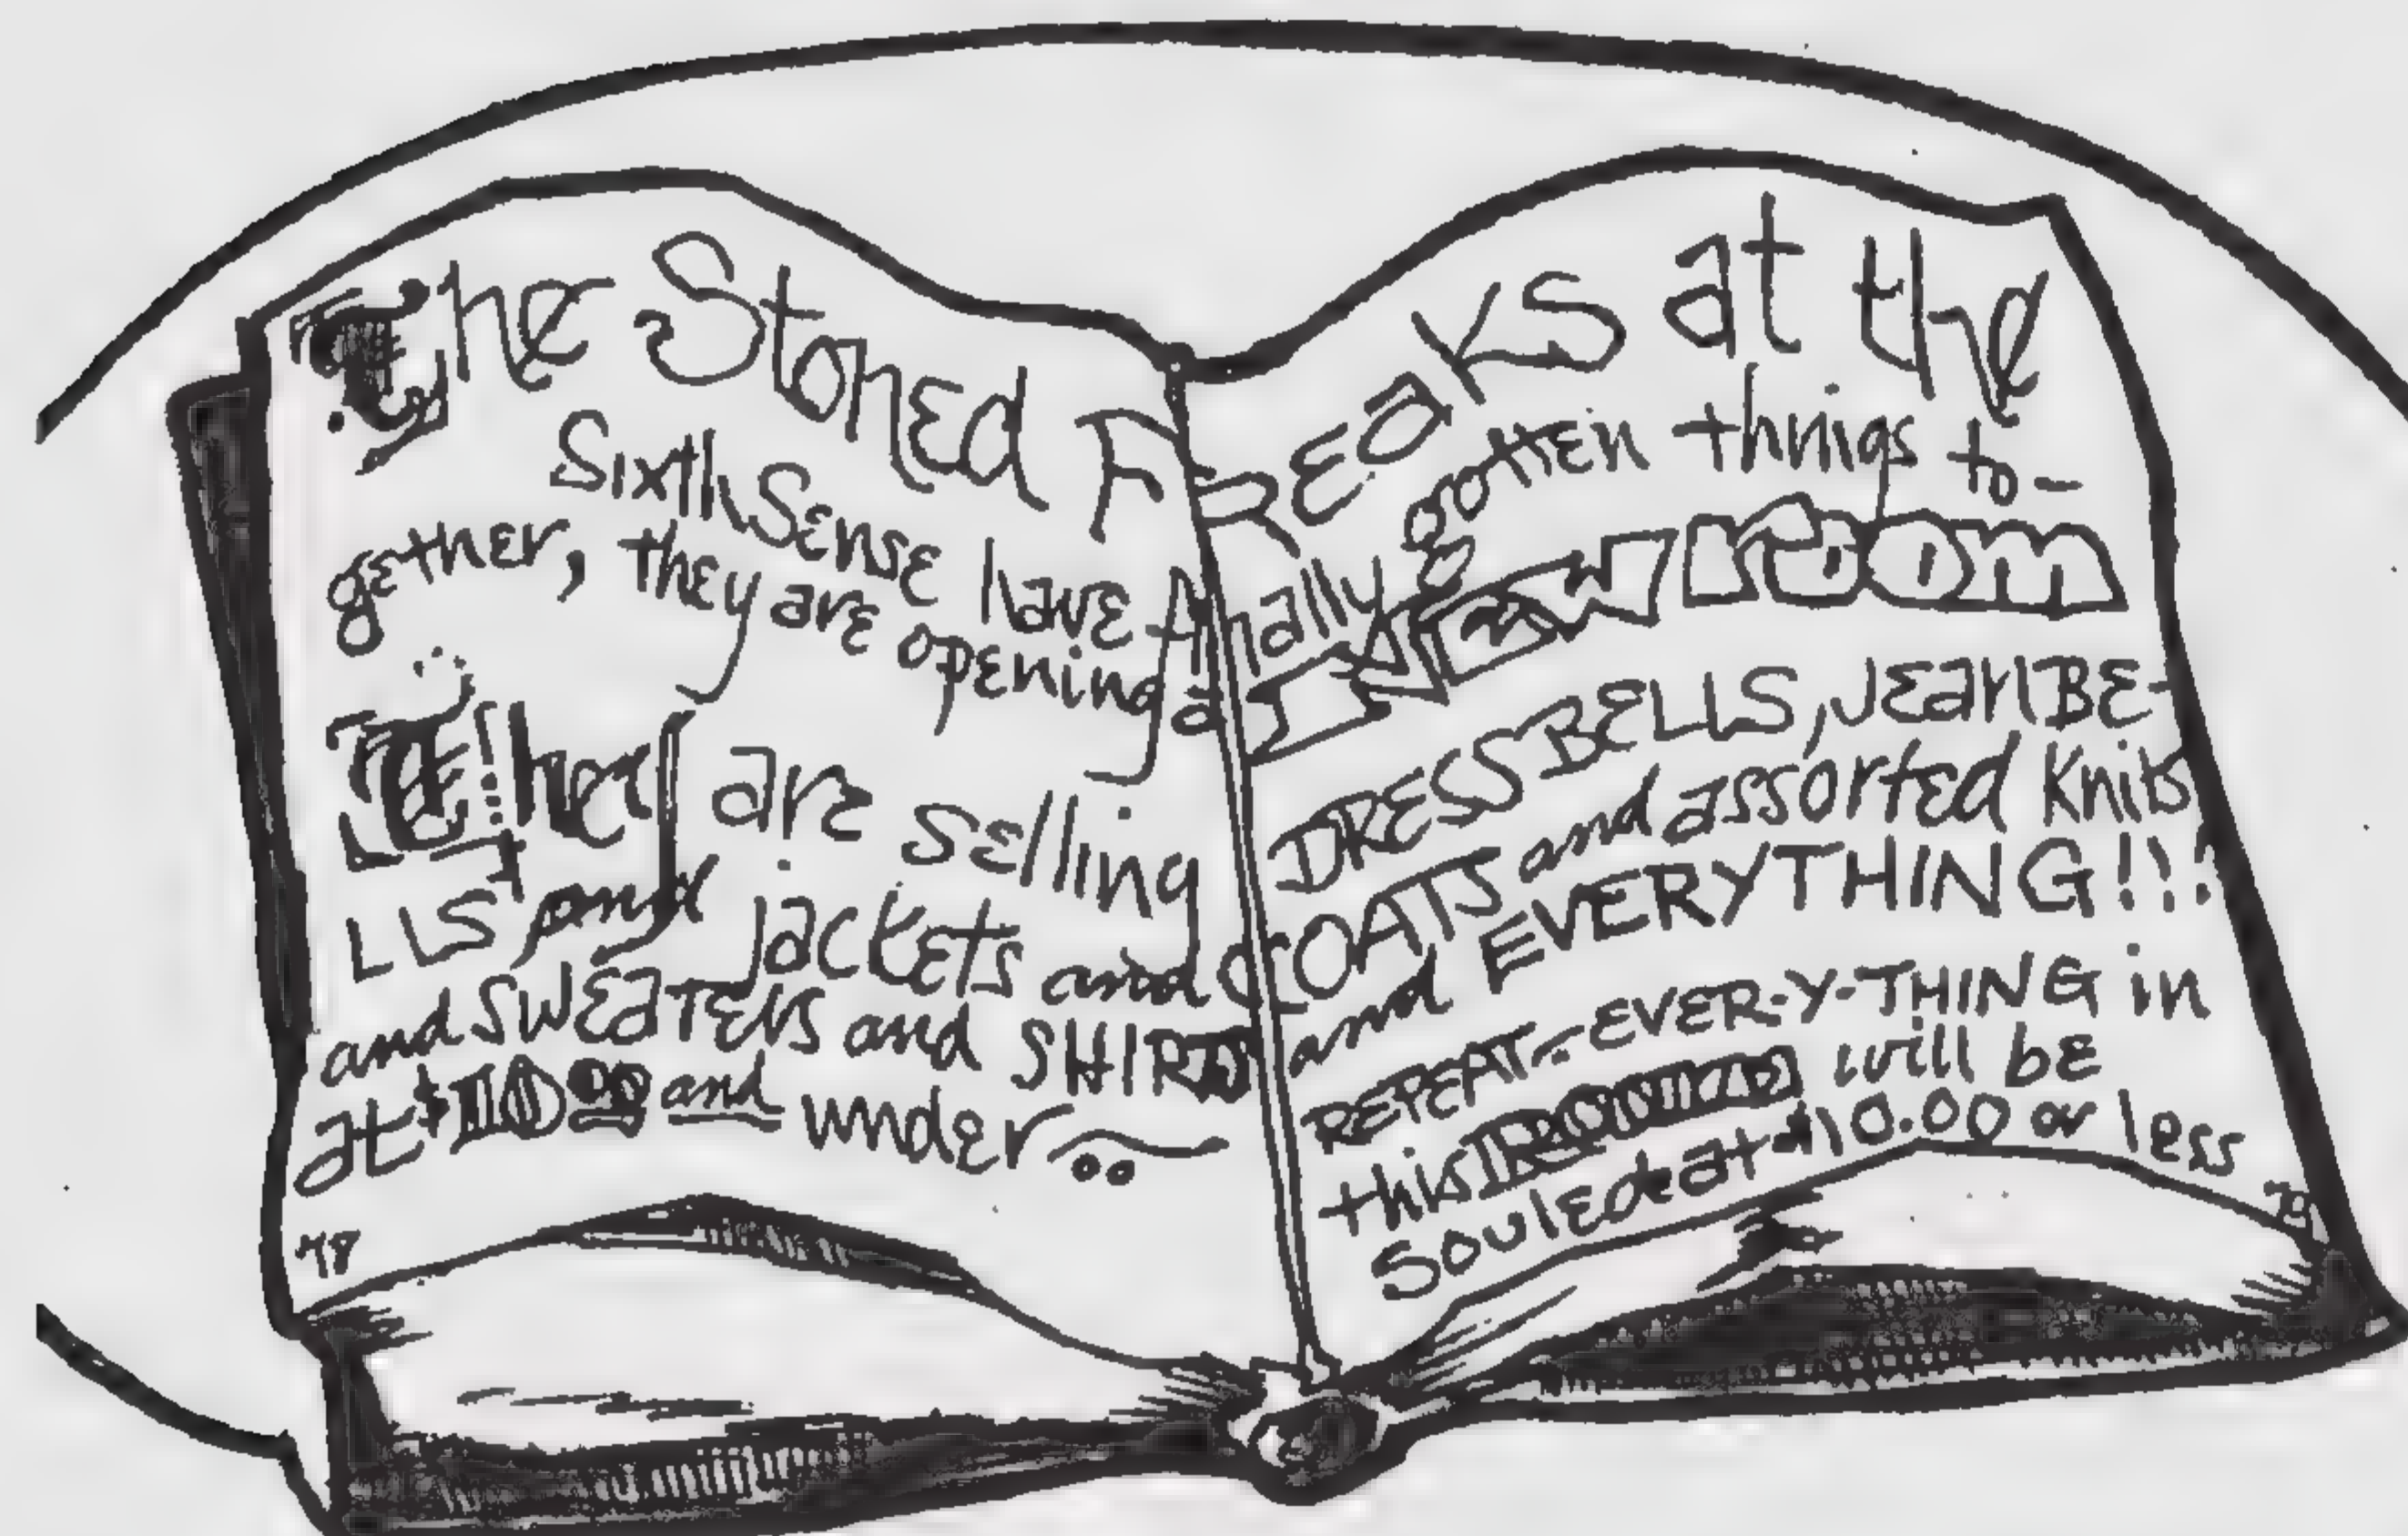 The Stoned FREAKS at the
Sixth Sense have finally gotten things to-
gether, they are opening a room
They are selling DRESS BELLS, JEAN BE-
LLS and jackets and COATS and assorted Knits
and SWEATERS and SHIRTS and EVERYTHING!!!
at $10.00 and under REPEAT-EVER-Y-THING in
this ROOM will be
Souled at $10.00 or less
78 79